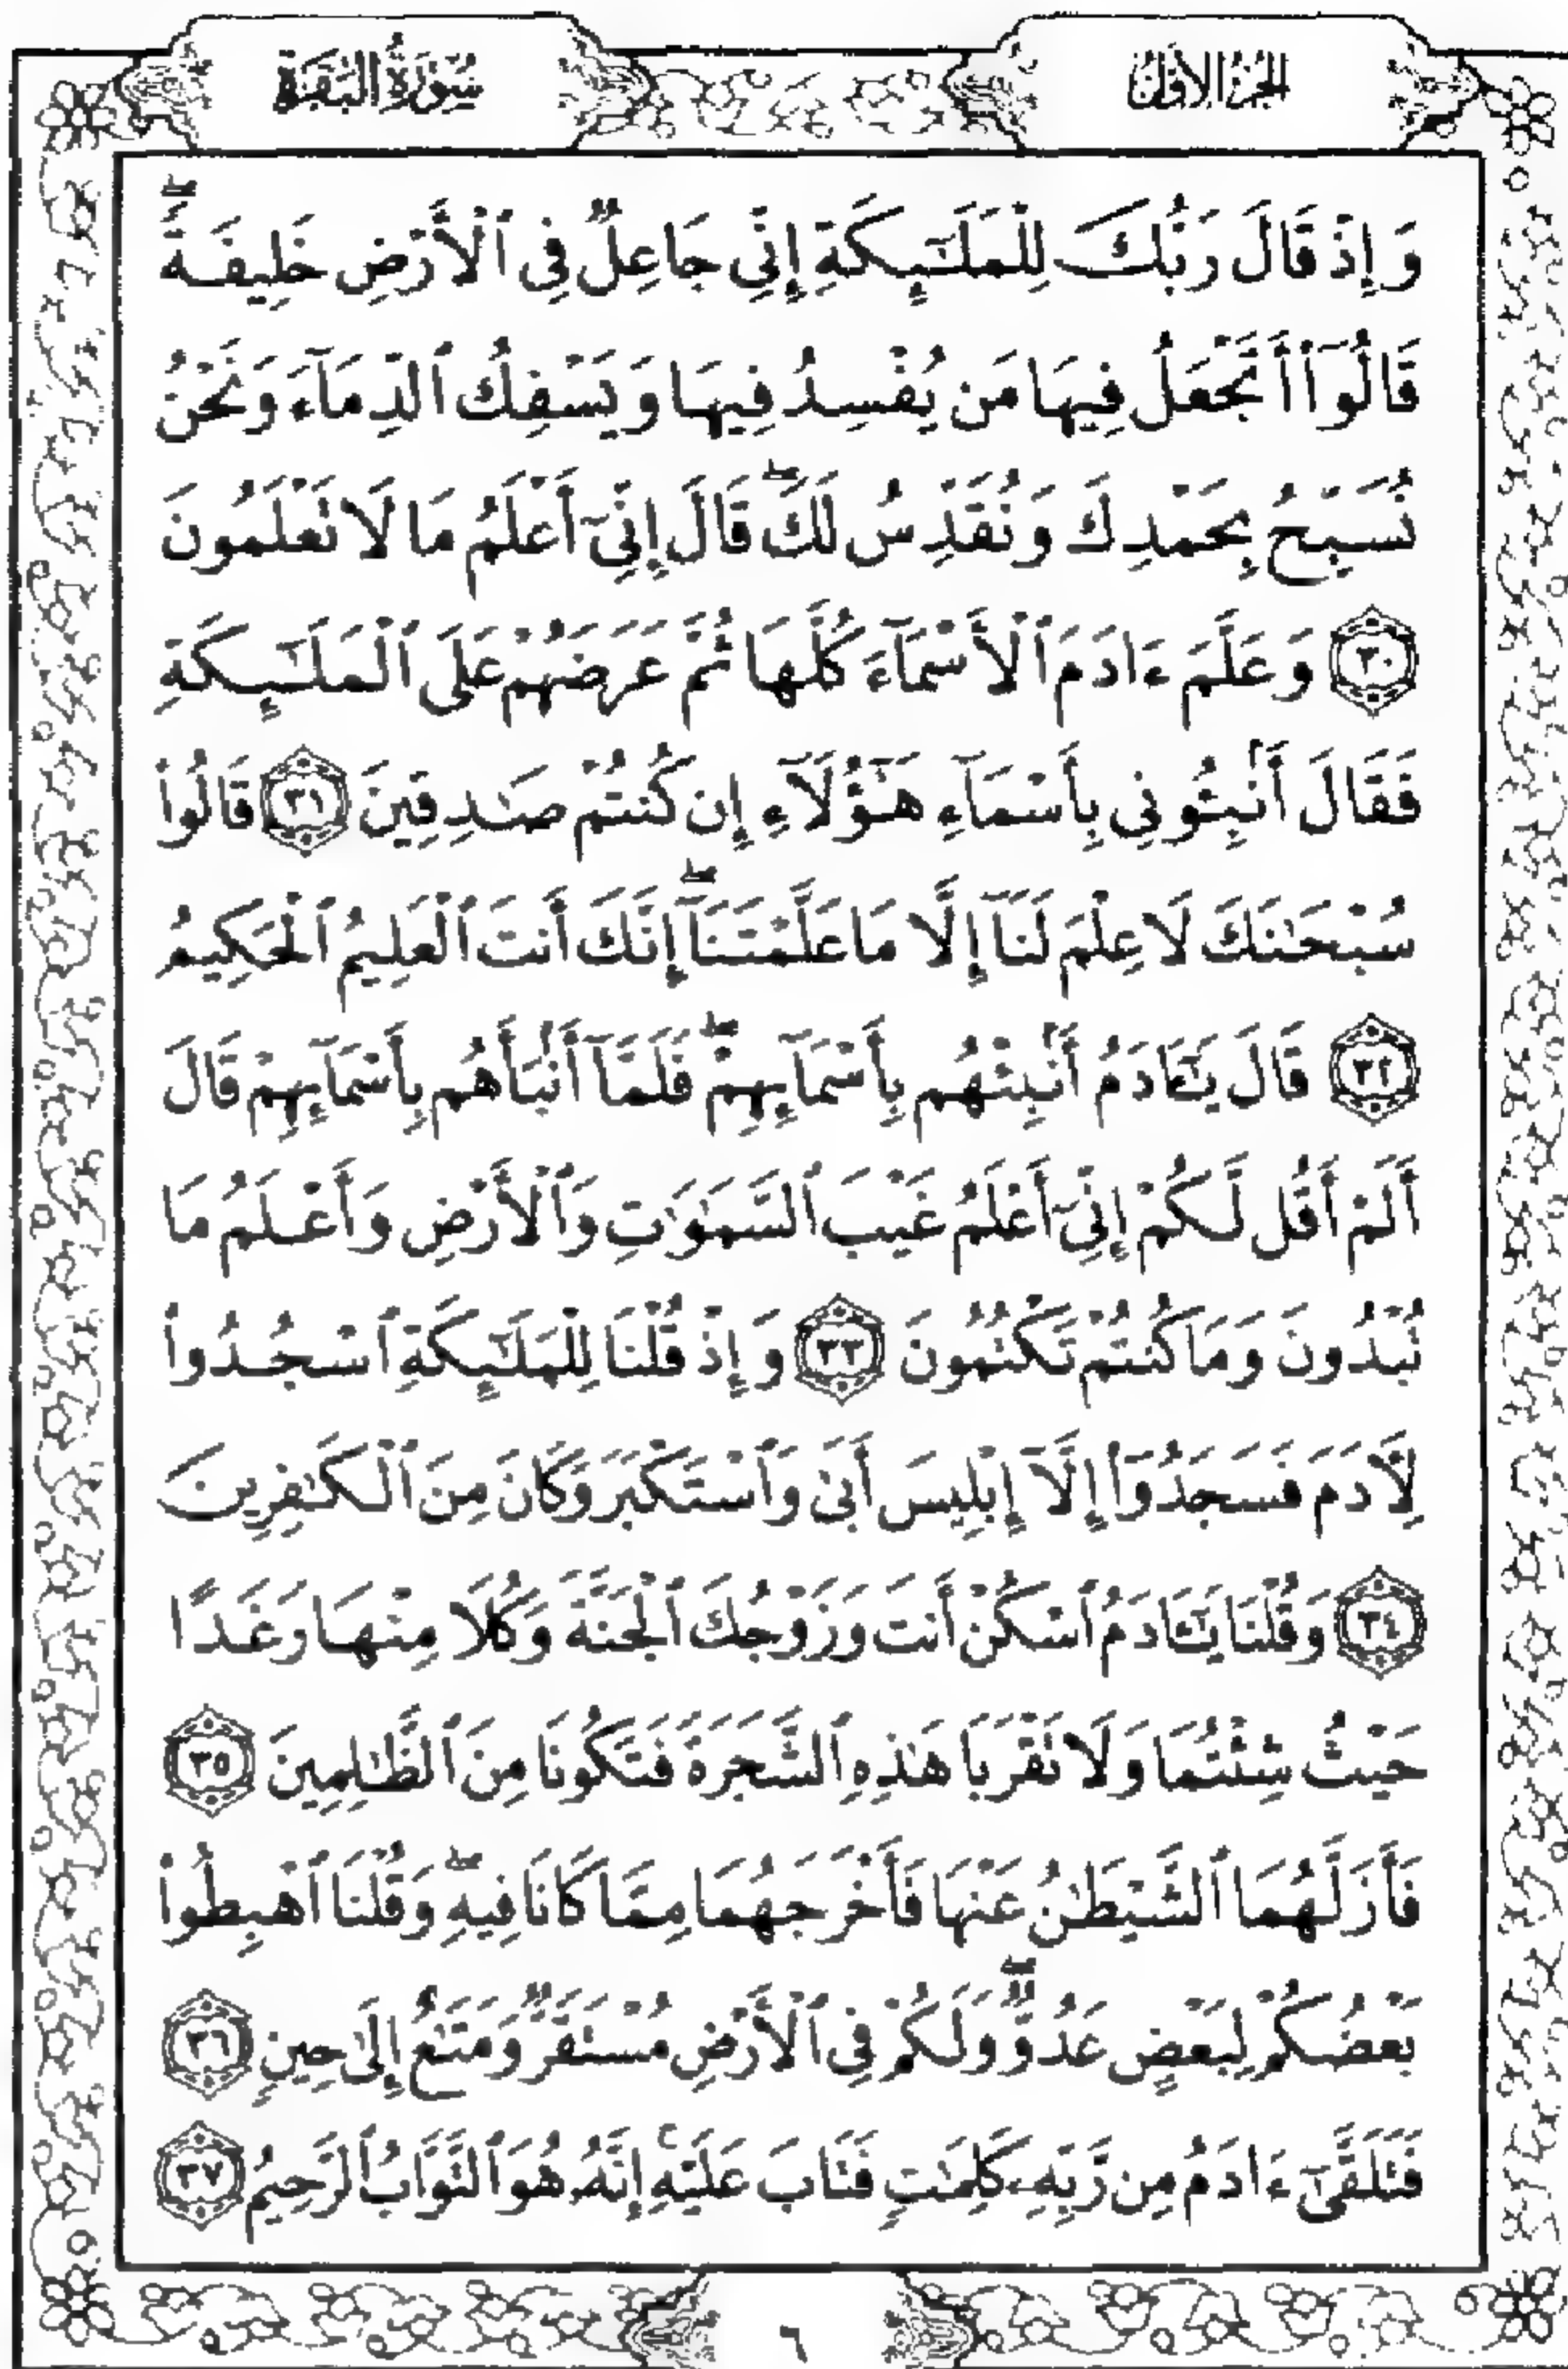 الجزء الأول
سورة البقرة
وَإِذْ قَالَ رَبُّكَ لِلْمَلَٰٓئِكَةِ إِنِّي جَاعِلٌ فِي ٱلْأَرْضِ خَلِيفَةًۖ
قَالُوٓا۟ أَتَجْعَلُ فِيهَا مَن يُفْسِدُ فِيهَا وَيَسْفِكُ ٱلدِّمَآءَ وَنَحْنُ
نُسَبِّحُ بِحَمْدِكَ وَنُقَدِّسُ لَكَۖ قَالَ إِنِّىٓ أَعْلَمُ مَا لَا تَعْلَمُونَ
٣٠ وَعَلَّمَ ءَادَمَ ٱلْأَسْمَآءَ كُلَّهَا ثُمَّ عَرَضَهُمْ عَلَى ٱلْمَلَٰٓئِكَةِ
فَقَالَ أَنۢبِـُٔونِى بِأَسْمَآءِ هَٰٓؤُلَآءِ إِن كُنتُمْ صَٰدِقِينَ ٣١ قَالُوا۟
سُبْحَٰنَكَ لَا عِلْمَ لَنَآ إِلَّا مَا عَلَّمْتَنَآۖ إِنَّكَ أَنتَ ٱلْعَلِيمُ ٱلْحَكِيمُ
٣٢ قَالَ يَٰٓـَٔادَمُ أَنۢبِئْهُم بِأَسْمَآئِهِمْۖ فَلَمَّآ أَنۢبَأَهُم بِأَسْمَآئِهِمْ قَالَ
أَلَمْ أَقُل لَّكُمْ إِنِّىٓ أَعْلَمُ غَيْبَ ٱلسَّمَٰوَٰتِ وَٱلْأَرْضِ وَأَعْلَمُ مَا
تُبْدُونَ وَمَا كُنتُمْ تَكْتُمُونَ ٣٣ وَإِذْ قُلْنَا لِلْمَلَٰٓئِكَةِ ٱسْجُدُوا۟
لِـَٔادَمَ فَسَجَدُوٓا۟ إِلَّآ إِبْلِيسَ أَبَىٰ وَٱسْتَكْبَرَ وَكَانَ مِنَ ٱلْكَٰفِرِينَ
٣٤ وَقُلْنَا يَٰٓـَٔادَمُ ٱسْكُنْ أَنتَ وَزَوْجُكَ ٱلْجَنَّةَ وَكُلَا مِنْهَا رَغَدًا
حَيْثُ شِئْتُمَا وَلَا تَقْرَبَا هَٰذِهِ ٱلشَّجَرَةَ فَتَكُونَا مِنَ ٱلظَّٰلِمِينَ ٣٥
فَأَزَلَّهُمَا ٱلشَّيْطَٰنُ عَنْهَا فَأَخْرَجَهُمَا مِمَّا كَانَا فِيهِۖ وَقُلْنَا ٱهْبِطُوا۟
بَعْضُكُمْ لِبَعْضٍ عَدُوٌّۖ وَلَكُمْ فِى ٱلْأَرْضِ مُسْتَقَرٌّ وَمَتَٰعٌ إِلَىٰ حِينٍ ٣٦
فَتَلَقَّىٰٓ ءَادَمُ مِن رَّبِّهِۦ كَلِمَٰتٍ فَتَابَ عَلَيْهِۚ إِنَّهُۥ هُوَ ٱلتَّوَّابُ ٱلرَّحِيمُ ٣٧
٦